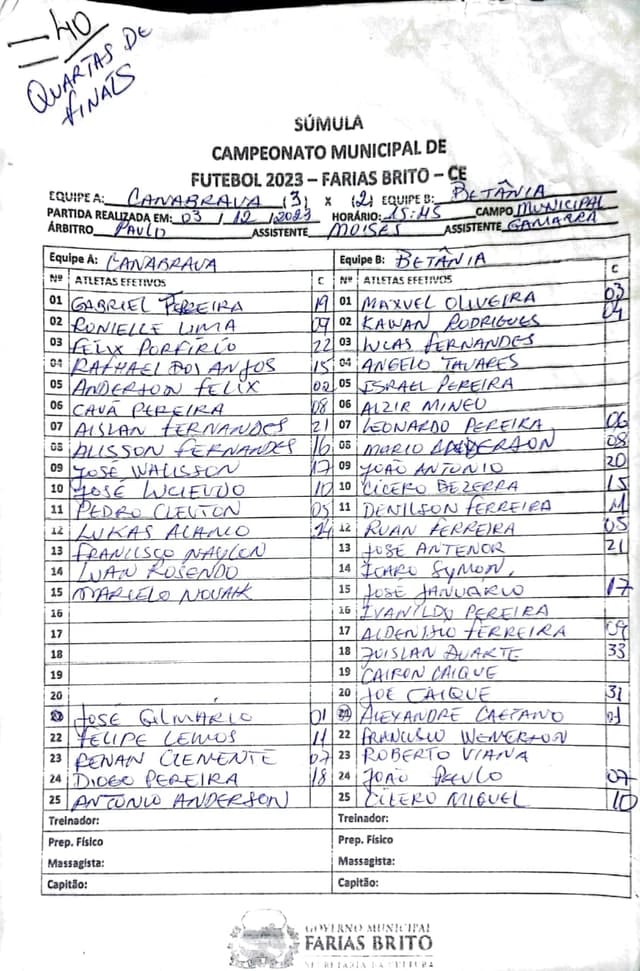 40
QUARTAS DE
FINAIS
SÚMULA
CAMPEONATO MUNICIPAL DE
FUTEBOL 2023 – FARIAS BRITO – CE
EQUIPE A: CANABRAVA (3) x (2) EQUIPE B: BETÂNIA
PARTIDA REALIZADA EM: 03 / 12 / 2023 HORÁRIO: 15:45 CAMPO MUNICIPAL
ÁRBITRO PAULO ASSISTENTE MOISES ASSISTENTE GAMARRA
Equipe A: CANABRAVA Equipe B: BETÂNIA
Nº ATLETAS EFETIVOS C Nº ATLETAS EFETIVOS C
01 GABRIEL PEREIRA 19 01 MAXVEL OLIVEIRA 03
02 RONIELLE LIMA 09 02 KAWAN RODRIGUES 04
03 FELIX PORFIRIO 22 03 LUCAS FERNANDES
04 RAFHAEL DOS ANJOS 15 04 ANGELO TAVARES
05 ANDERSON FELIX 02 05 ISRAEL PEREIRA
06 CAVÃ PEREIRA 08 06 ALZIR MINEU
07 AISLAN FERNANDES 21 07 LEONARDO PEREIRA 06
08 ALISSON FERNANDES 16 08 MARIO ANDERSON 08
09 JOSÉ WALISSON 17 09 JOÃO ANTONIO 20
10 JOSÉ LUCIEUDO 10 10 CICERO BEZERRA 15
11 PEDRO CLEITON 05 11 DENILSON FERREIRA 11
12 LUKAS ALANCO 14 12 RUAN FERREIRA 05
13 FRANCISCO NAYLON 13 JOSÉ ANTENOR 21
14 LUAN ROSENDO 14 ICARO SYMON,
15 MARCELO NOVAK 15 JOSÉ JANUÁRIO 17
16 16 IVANILDO PEREIRA
17 17 ALDENISIO FERREIRA 09
18 18 JUISLAN DUARTE 33
19 19 CAIRON CAIQUE
20 20 JOE CAIQUE 31
JOSÉ GILMÁRIO 01 ALEXANDRE CAETANO 01
22 FELIPE LEMOS 11 22 FRANCISCO WEVERSON
23 RENAN CLEMENTE 07 23 ROBERTO VIANA
24 DIOGO PEREIRA 18 24 JOÃO PAULO 07
25 ANTONIO ANDERSON 25 CICERO MIGUEL 10
Treinador: Treinador:
Prep. Físico Prep. Físico
Massagista: Massagista:
Capitão: Capitão:
GOVERNO MUNICIPAL
FARIAS BRITO
SECRETARIA DA CULTURA